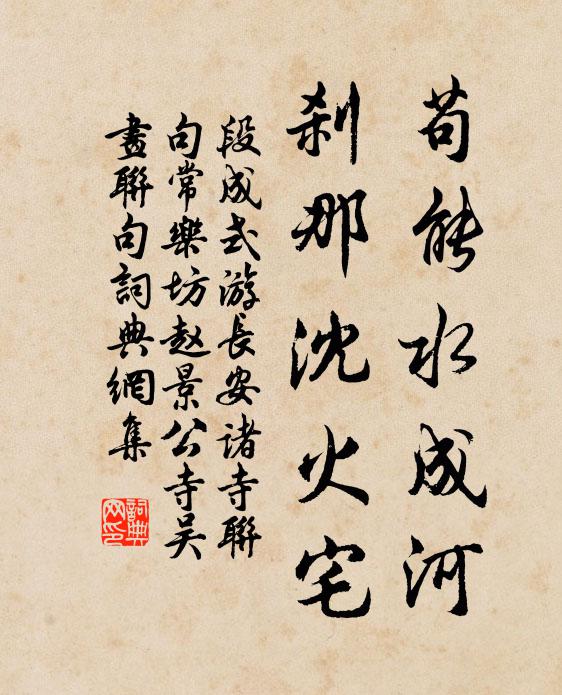 苟能水成河
刹那沈火宅
段成式游長安諸寺聯
句常樂坊赵景公寺吴
畫聯句詞典網集
詞典网印